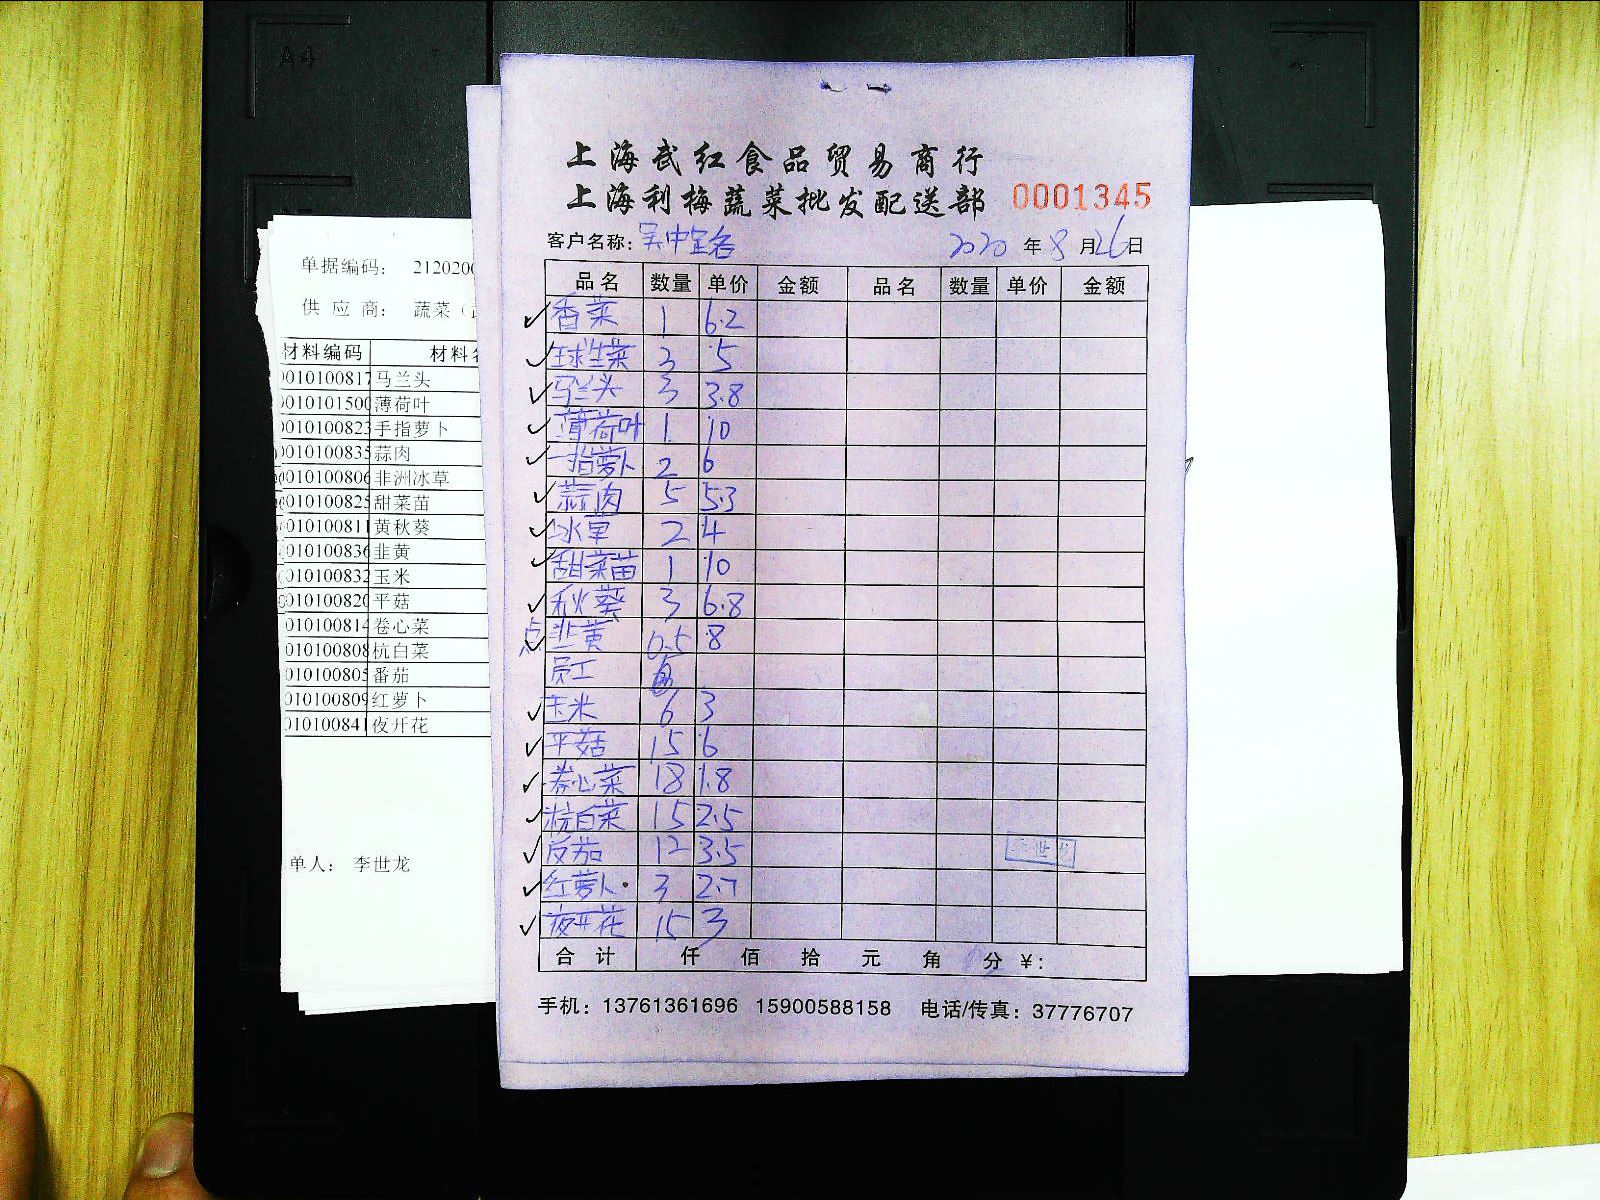 A4
上海武红食品贸易商行
上海利梅蔬菜批发配送部 0001345
客户名称: 吴中 2020 年 8 月 26 日
品名 数量 单价 金额 品名 数量 单价 金额
香菜 1 6.2
球生菜 3 5
马兰头 3 3.8
薄荷叶 1 10
指萝卜 2 6
蒜肉 5 5.3
冰草 2 4
甜菜苗 1 10
秋葵 3 6.8
点 韭黄 0.5 8
员工
玉米 6 3
平菇 15 6
卷心菜 18 1.8
杭白菜 15 2.5
反茄 12 3.5
红萝卜 3 2.7
夜开花 15 3
合计 仟 佰 拾 元 角 分 ¥:
手机: 13761361696 15900588158 电话/传真: 37776707
李世龙
单据编码: 2120200
供应商: 蔬菜(
材料编码 材料名
010100817 马兰头
010101500 薄荷叶
010100823 手指萝卜
010100835 蒜肉
010100806 非洲冰草
010100825 甜菜苗
010100811 黄秋葵
010100836 韭黄
010100832 玉米
010100820 平菇
010100814 卷心菜
010100808 杭白菜
010100805 番茄
010100809 红萝卜
010100841 夜开花
单人: 李世龙